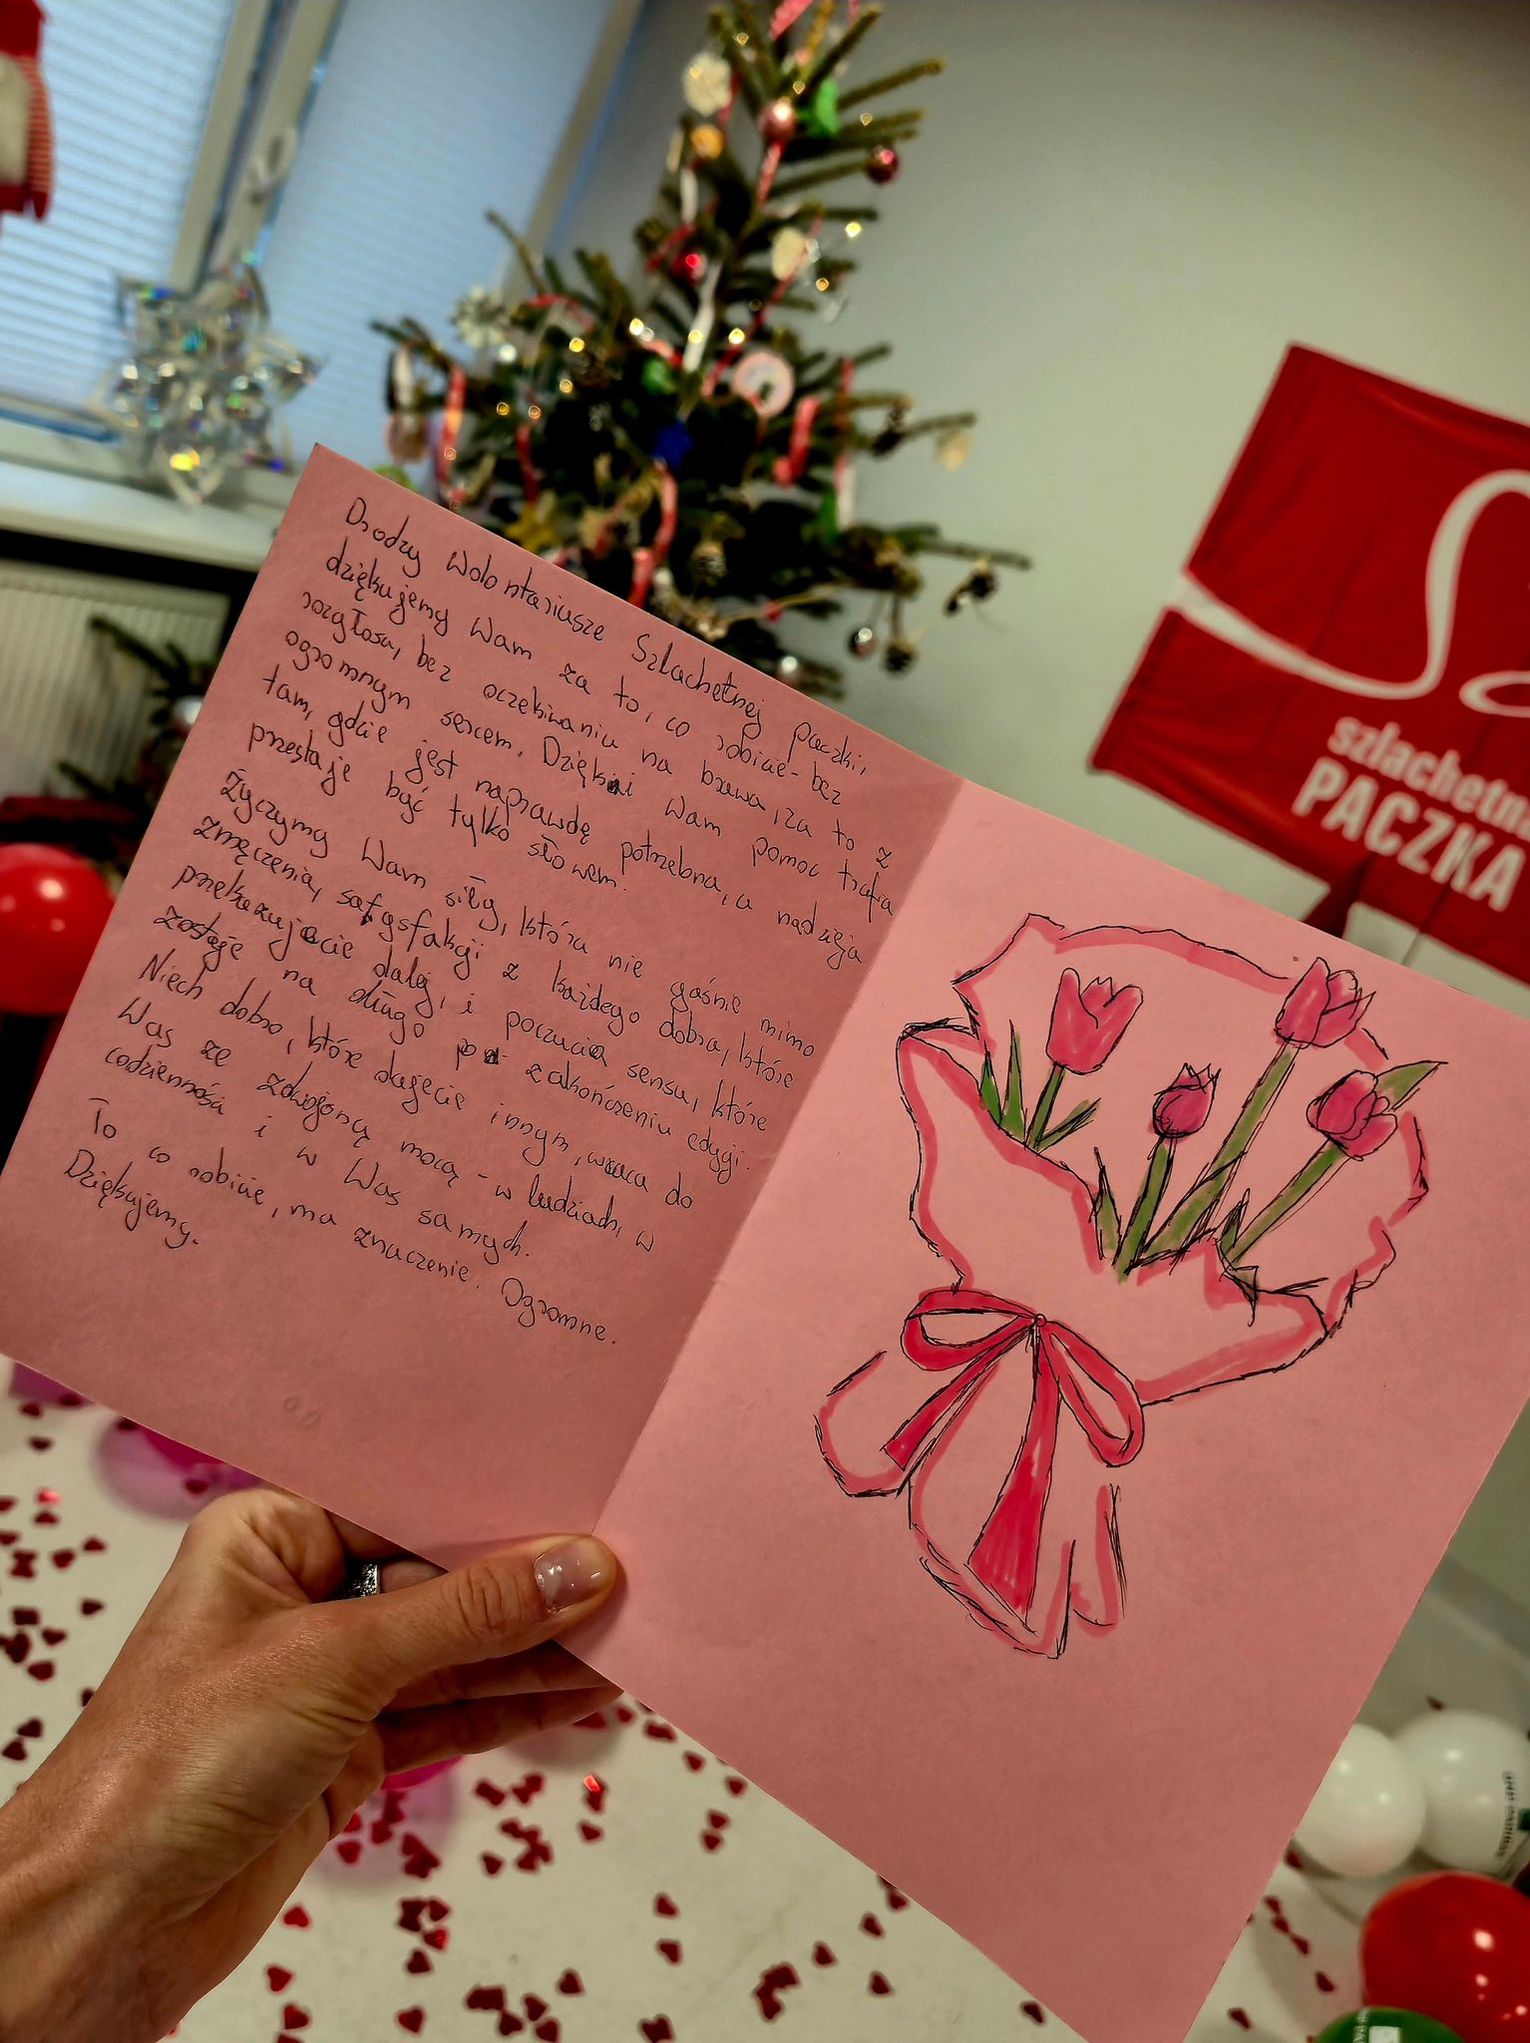 Drodzy Wolontariusze Szlachetnej Paczki,
dziękujemy Wam za to, co robicie - bez
rozgłosu, bez oczekiwania na brawa, za to z
ogromnym sercem. Dzięki Wam pomoc trafia
tam, gdzie jest naprawdę potrzebna, a nadzieja
przestaje być tylko słowem.
Życzymy Wam siły, która nie gaśnie mimo
zmęczenia, satysfakcji z każdego dobra, które
przekazujecie dalej, i poczucia sensu, które
zostaje na długo po zakończeniu edycji.
Niech dobro, które dajecie innym, wraca do
Was ze zdwojoną mocą - w ludziach, w
codzienności i w Was samych.
To co robicie, ma znaczenie. Ogromne.
Dziękujemy.
szlachetna
PACZKA